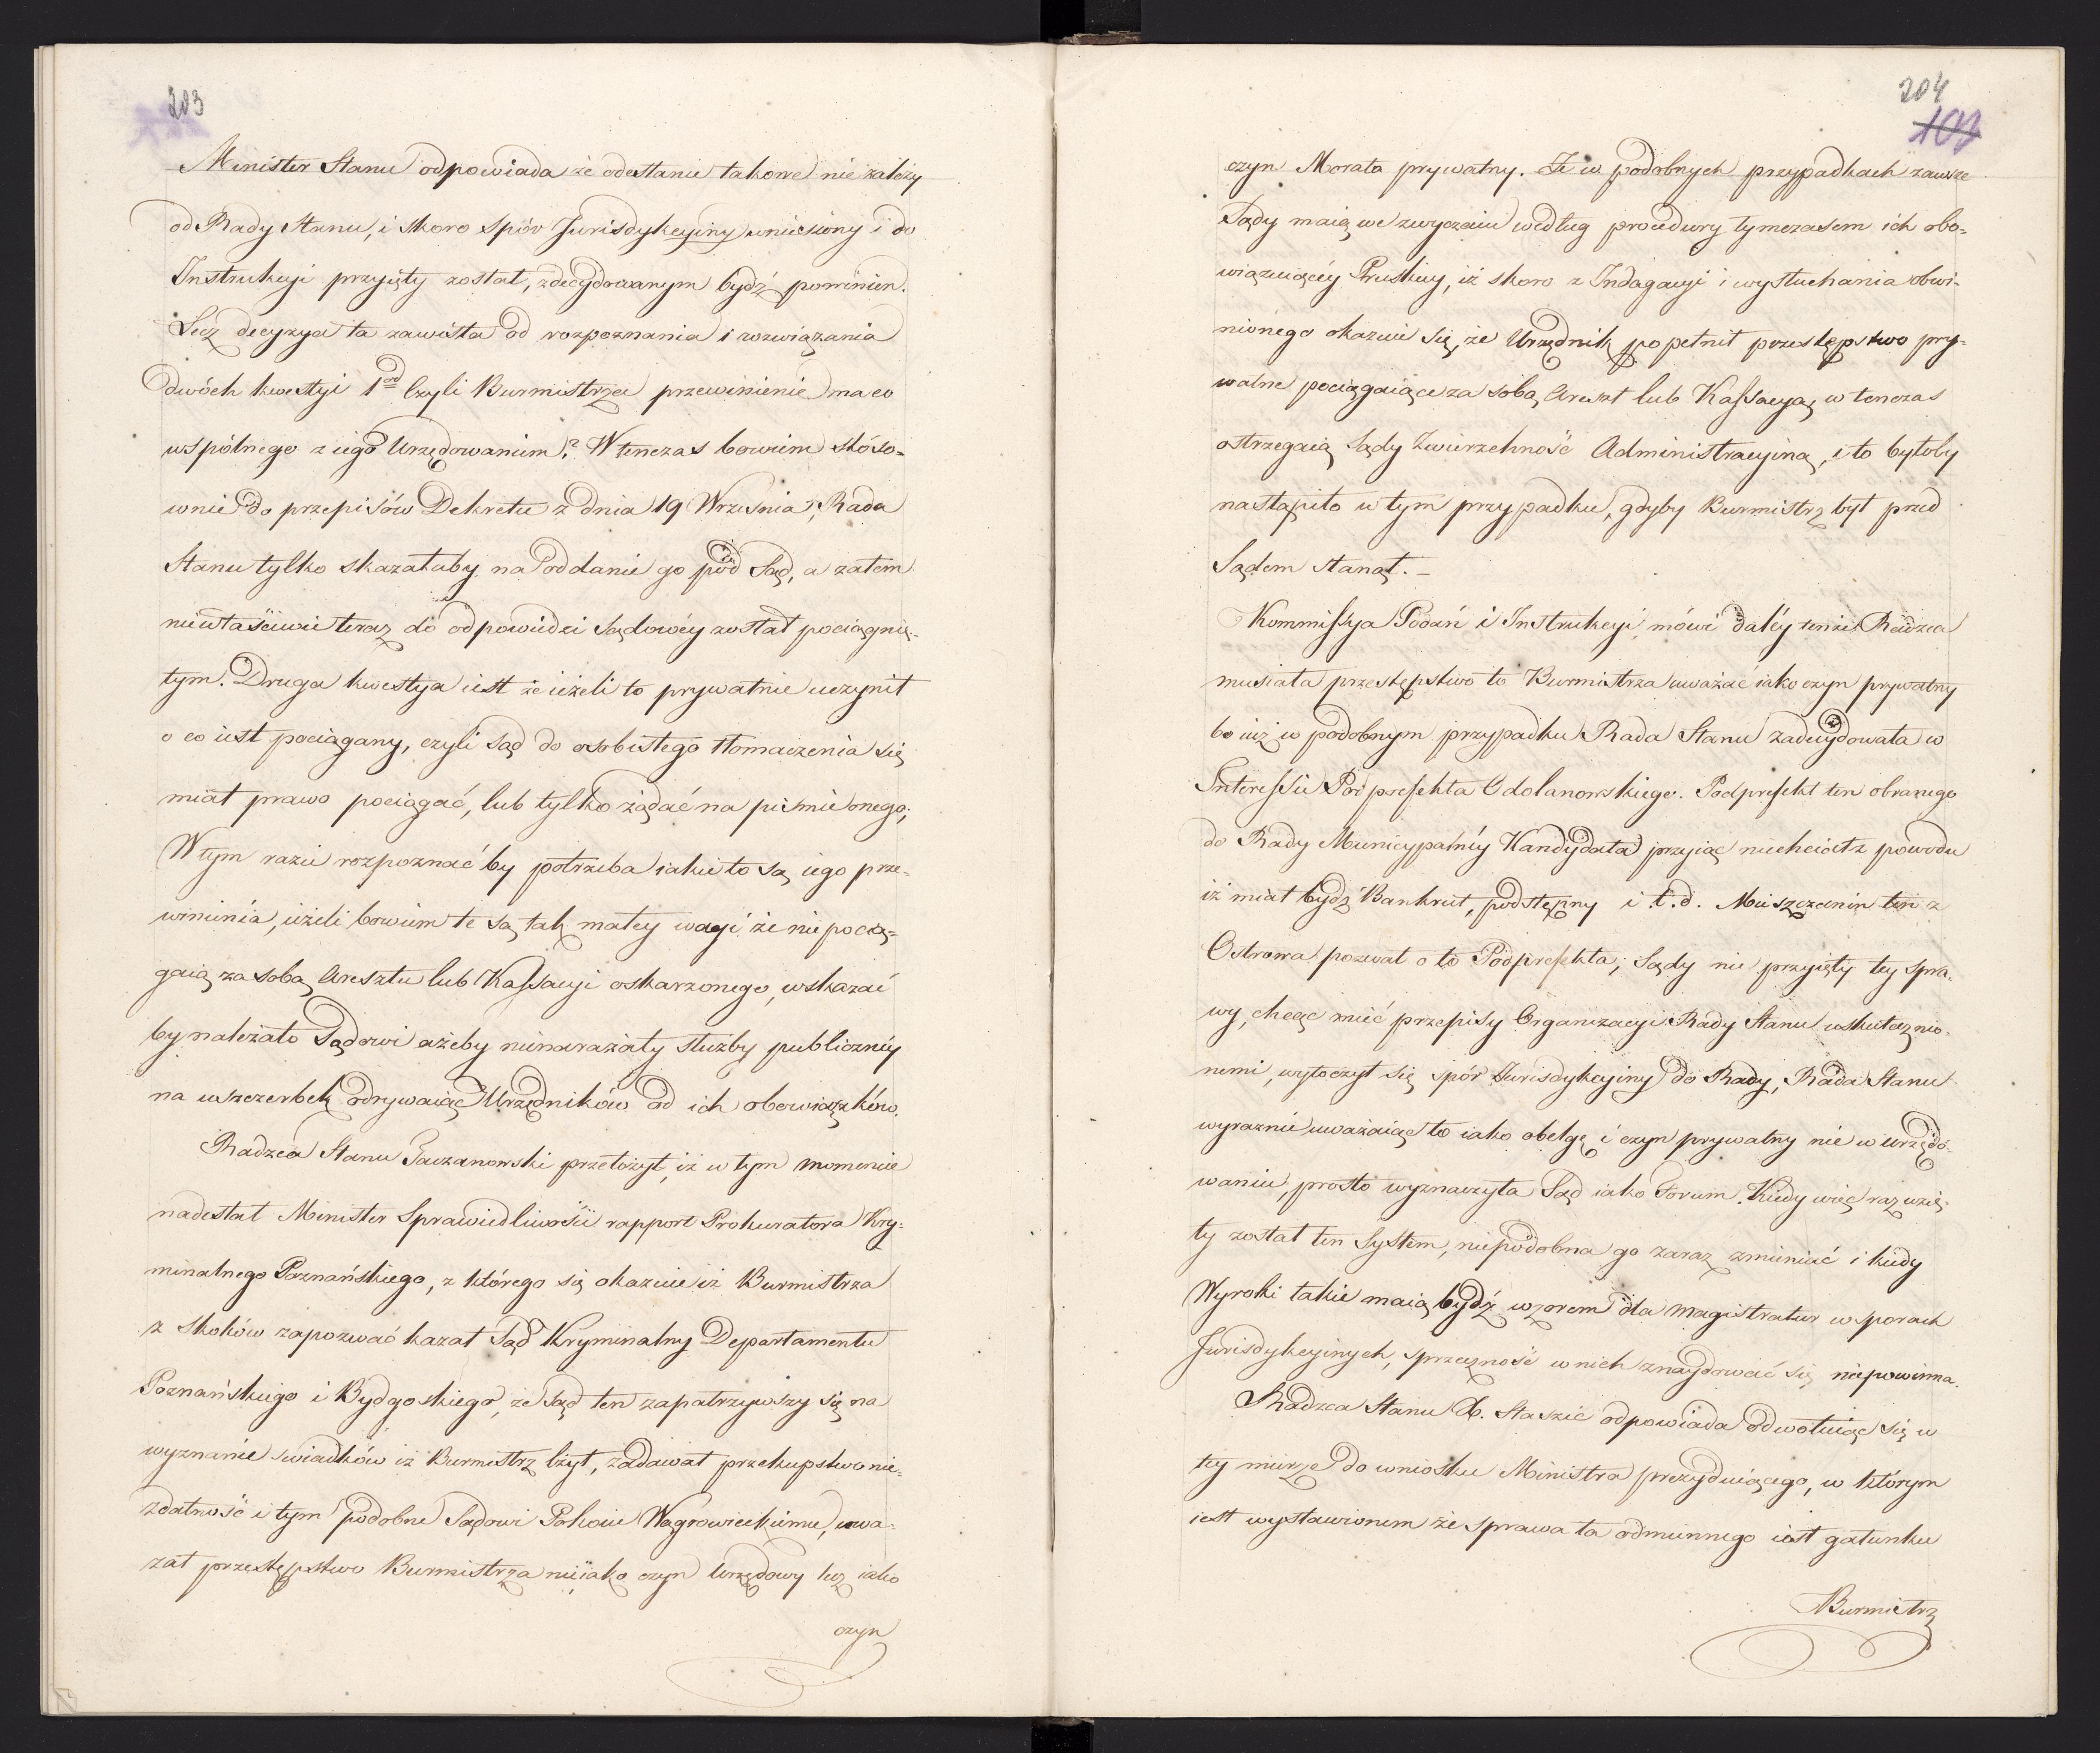 203
Minister Stanu odpowiada że odesłanie takowe nie zależy
od Rady Stanu, i skoro spór Jurisdykcyiny wniesiony i do
Instrukcyi przyięty został, zdecydowanym bydź powinien.
Lecz decyzya ta zawisła od rozpoznania i rozwiązania
dwóch kwestyi 1od Czyli Burmistrza przewinienie ma co
wspólnego z iego Urzędowaniem? Wtenczas bowiem stóso-
wnie do przepisów Dekretu z dnia 19 Września, Rada
Stanu tylko skazałaby na oddanie go pod Sąd, a zatem
niewłaściwie teraz do odpowiedzi sądowéy został pociągnię-
tym. Druga kwestya iest że ieżeli to prywatnie uczynił
o co iest pociągany, czyli sąd do osobistego tłomaczenia się
miał prawo pociągać, lub tylko żądać na piśmie onego;
W tym razie rozpoznać by potrzeba iakie to są iego prze-
winienia, ieżeli bowiem te są tak małey wagi że nie pocią-
gaią za sobą Aresztu lub Kassacyi oskarzonego, wskazać
by należało Sądowi ażeby nienarażały służby publicznéy
na uszczerbek odrywaiąc Urzędników od ich obowiązków.
Radzca Stanu Gaczanowski przełożył, iż w tym momencie
nadesłał Minister Sprawiedliwości rapport Prokuratora Kry-
minalnego Poznańskiego, z którego się okazuie iż Burmistrza
z Skoków zapozwać kazał Sąd Kryminalny Departamentu
Poznańskiego i Bydgoskiego, że sąd ten zapatrzywszy się na
wyznanie swiadków iż Burmistrz lżył, zadawał przekupstwo nie-
zdatność i tym podobne Sądowi Pokoiu Wągrowieckiemu, uwa-
żał przestępstwo Burmistrza nie iako czyn Urzędowy lecz iako
czyn
204
103
czyn Morała prywatny. Że w podobnych przypadkach zawsze
Sądy maią we zwyczaiu według procedury tymczasem ich obo-
wiązuiącéy Pruskiey, iż skoro z Indagacyi i wysłuchania obwi-
nionego okazuie się, że Urzędnik popełnił przestępstwo pry-
watne pociągaiące za sobą Areszt lub Kassacyą, w tenczas
ostrzegaią Sądy Zwierzchność Administracyiną, i to byłoby
nastąpiło w tym przypadku, gdyby Burmistrz był przed
Sądem stanął. –
Kommissya Podań i Instrukcyi, mówi daléy tenże Radzca
musiała przestępstwo to Burmistrza uważać iako czyn prywatny
bo iuż w podobnym przypadku Rada Stanu zadecydowała w
Interessie Podprefekta Odolanowskiego. Podprefekt ten obranego
do Rady Municypalnéy Kandydata przyiąć niechciał z powodu
iż miał bydź Bankrut, podstępny i t.d. Mieszczanin ten z
Ostrowa pozwał o to Podprefekta; Sądy nie przyięły tey spra-
wy, chcąc mieć przepisy Organizacyi Rady Stanu uskutecznio-
nemi, wytoczył się spór Jurisdykcyiny do Rady; Rada Stanu
wyraznie uważaiąc to iako obelgę i czyn prywatny nie w urzędo-
waniu, prosto wyznaczyła Sąd iako Forum. Kiedy więc raz wzię-
ty został ten System, niepodobna go zaraz zmieniać i kiedy
Wyroki takie maią bydź wzorem dla Magistratur w sporach
Jurisdykcyinych, sprzeczność w nich znaydować się niepowinna.
Radzca Stanu X. Staszic odpowiada odwołuiąc się w
tey mierze do wniosku Ministra prezyduiącego, w którym
iest wystawionem że sprawa ta odmiennego iest gatunku
Burmistrz